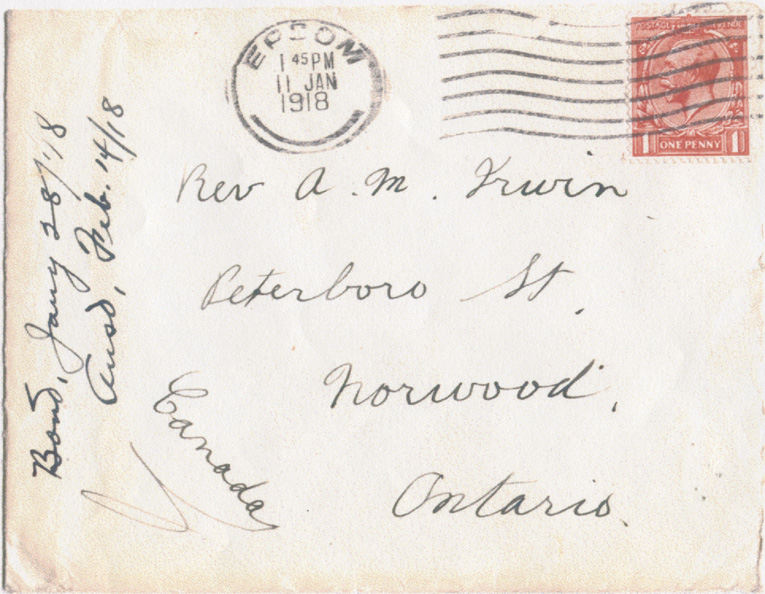 EPSOM
1 45PM
11 JAN
1918
POSTAGE
ONE PENNY
1 1
Rev A. M. Irwin
Peterboro St.
Norwood,
Ontario.
Canada
Bond, Jany 28/'18
Ansd, Feb. 14/18